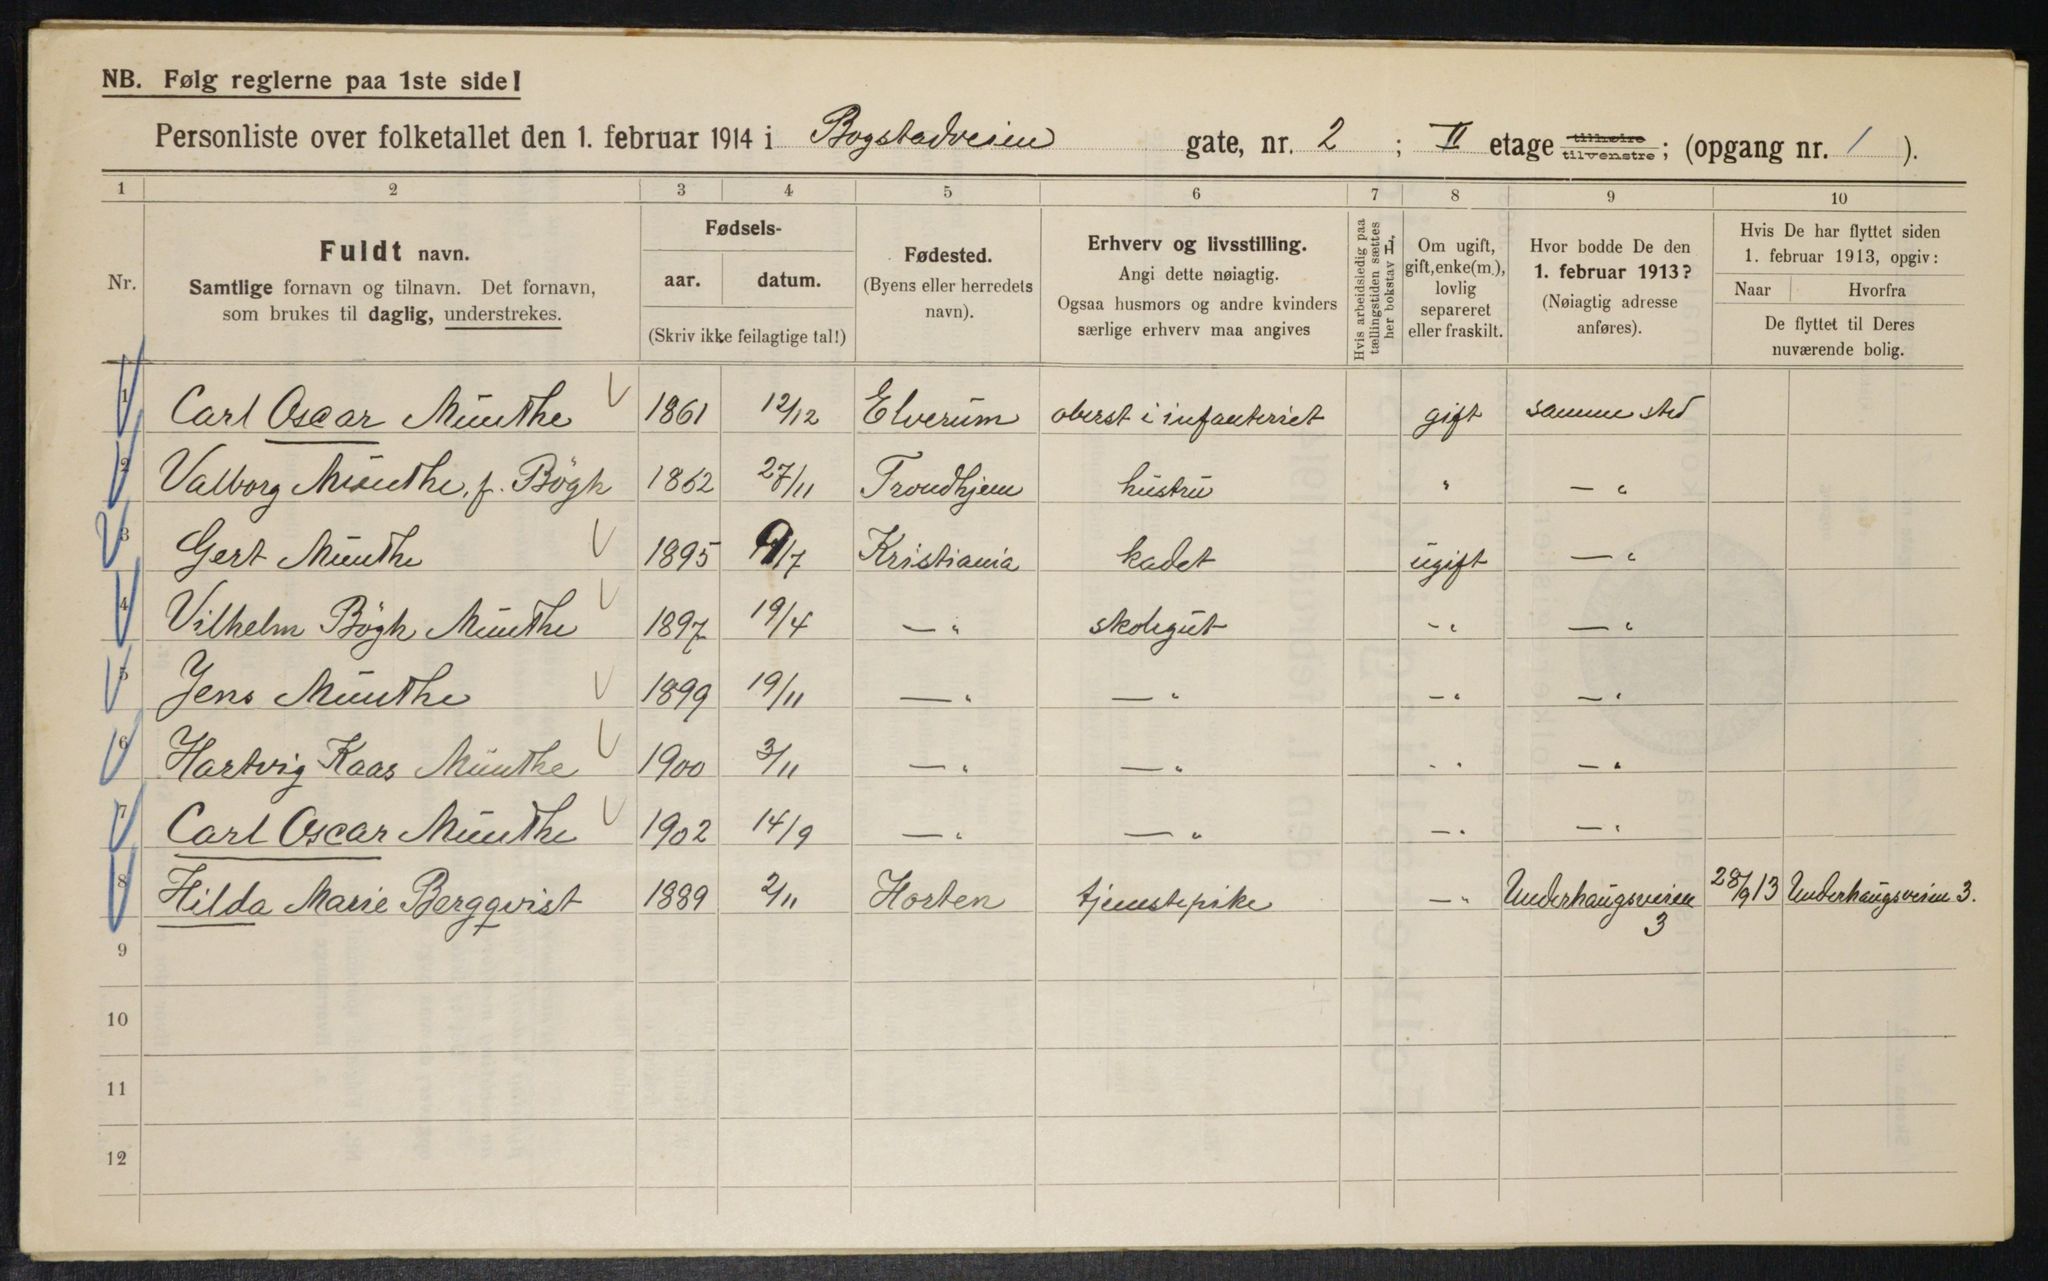 NB. Følg reglerne paa 1ste side!
Personliste over folketallet den 1. februar 1914 i Bogstadveien gate, nr. 2 ; II etage tilhøire tilvenstre; (opgang nr. 1 ).
1 2 3 4 5 6 7 8 9 10
Nr.
Fuldt navn.
Samtlige fornavn og tilnavn. Det fornavn,
som brukes til daglig, understrekes.
Fødsels-
aar. datum.
(Skriv ikke feilagtige tal!)
Fødested.
(Byens eller herredets
navn).
Erhverv og livsstilling.
Angi dette nøiagtig.
Ogsaa husmors og andre kvinders
særlige erhverv maa angives
Hvis arbeidsledig paa
tællingstiden sættes
her bokstav L,
Om ugift,
gift, enke(m.),
lovlig
separeret
eller fraskilt.
Hvor bodde De den
1. februar 1913?
(Nøiagtig adresse
anføres).
Hvis De har flyttet siden
1. februar 1913, opgiv:
Naar Hvorfra
De flyttet til Deres
nuværende bolig.
1 Carl Oscar Munthe 1861 12/12 Elverum oberst i infanteriet gift samme sted
2 Valborg Munthe, f. Bögh 1862 27/11 Trondhjem hustru " — "
3 Gert Munthe 1895 9/7 Kristiania kadet ugift — "
4 Vilhelm Bögh Munthe 1897 19/4 — " skolegut — " — "
5 Jens Munthe 1899 19/11 — " — " — " — "
6 Hartvig Kaas Munthe 1900 3/11 — " — " — " — "
7 Carl Oscar Munthe 1902 14/9 — " — " — " — "
8 Hilda Marie Bergqvist 1889 2/11 Horten tjenstepike — " Underhaugsveien 3 28/9 13 Underhaugsveien 3.
9
10
11
12